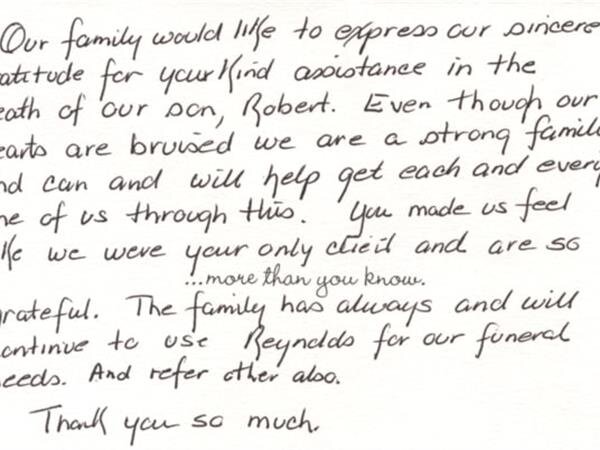 Our family would like to express our sincere
atitude for your kind assistance in the
eath of our son, Robert. Even though our
earts are bruised we are a strong famil
nd can and will help get each and every
ne of us through this. You made us feel
ike we were your only client and are so
...more than you know.
rateful. The family has always and will
ontinue to use Reynolds for our funeral
eeds. And refer other also.
Thank you so much.